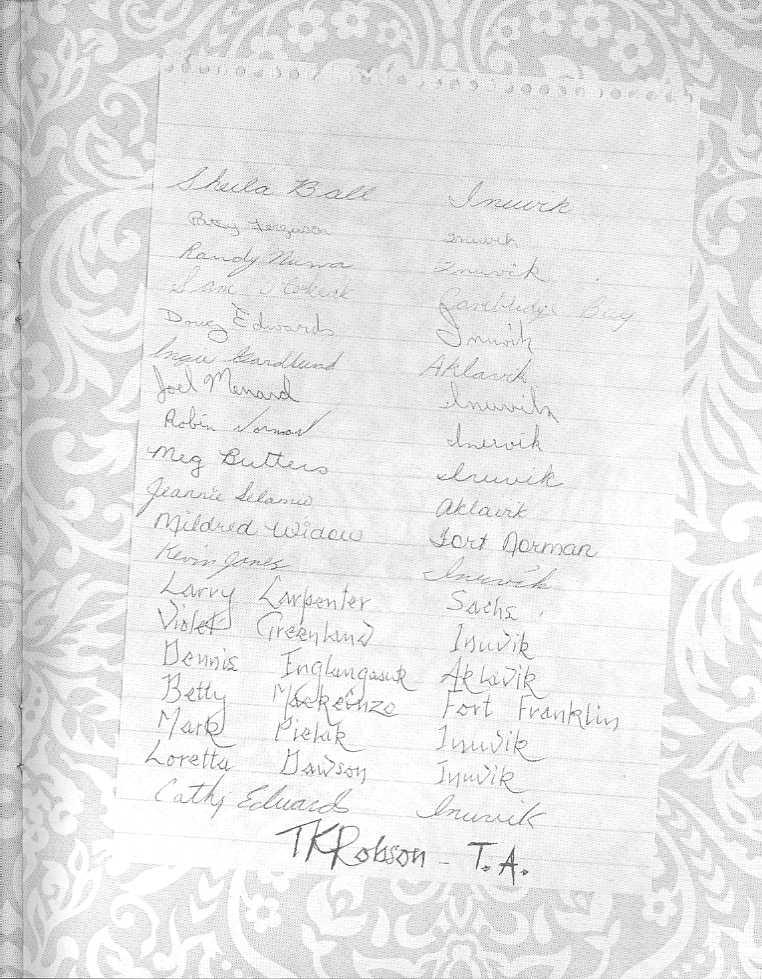 Sheila Ball Inuvik
Ferguson Inuvik
Randy Inuvik
Sam Cambridge Bay
Doug Edwards Inuvik
Aklavik
Joel Menard Inuvik
Robin Inuvik
Meg Butters Inuvik
Jeannie Aklavik
Mildred Widow Fort Norman
Kevin Jones Inuvik
Larry Carpenter Sachs
Violet Greenland Inuvik
Dennis Inglangasuk Aklavik
Betty Mackeinzo Fort Franklin
Mark Pielak Inuvik
Loretta Dawson Inuvik
Cathy Edwards Inuvik
TKRobson - T.A.